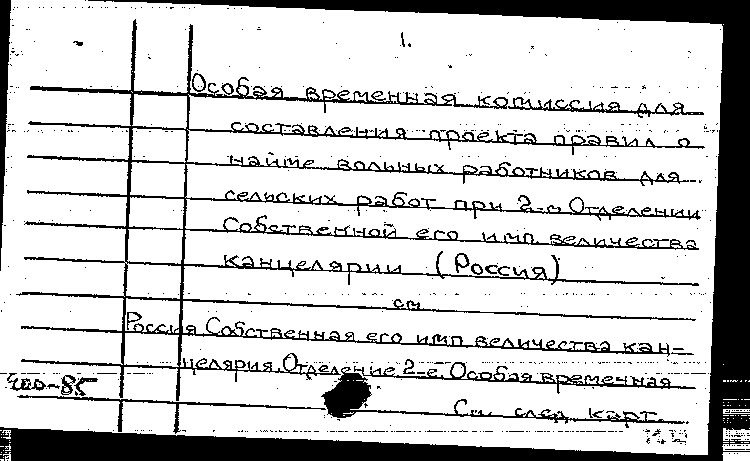 1.
Особая временная комиссия для
составления проекта правил о
найме вольных работников для
сельских работ при 2-м Отделении
Собственной его имп. величества
канцелярии (Россия)
см
Россия Собственная его имп величества кан-
целярия. Отделение 2-е. Особая временная
400-85
См. след. карт.